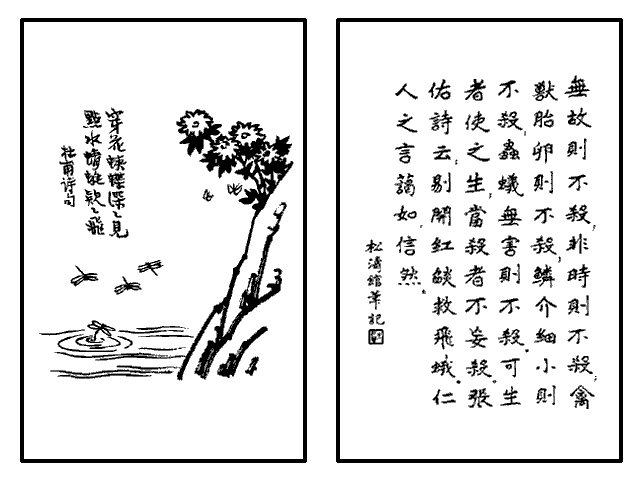 穿花蛺蝶深〻見
點水蜻蜓欵〻飛
杜甫詩句
無故則不殺,非時則不殺;禽
獸胎卵則不殺,鱗介細小則
不殺,蟲蟻無害則不殺。可生
者使之生,當殺者不妄殺。張
佑詩云,剔開紅燄救飛蛾。仁
人之言藹如,信然。
松濤館筆記